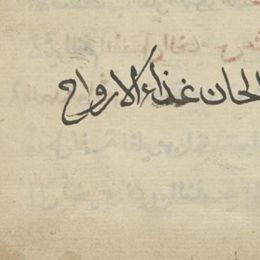 الحان غذاء الارواح